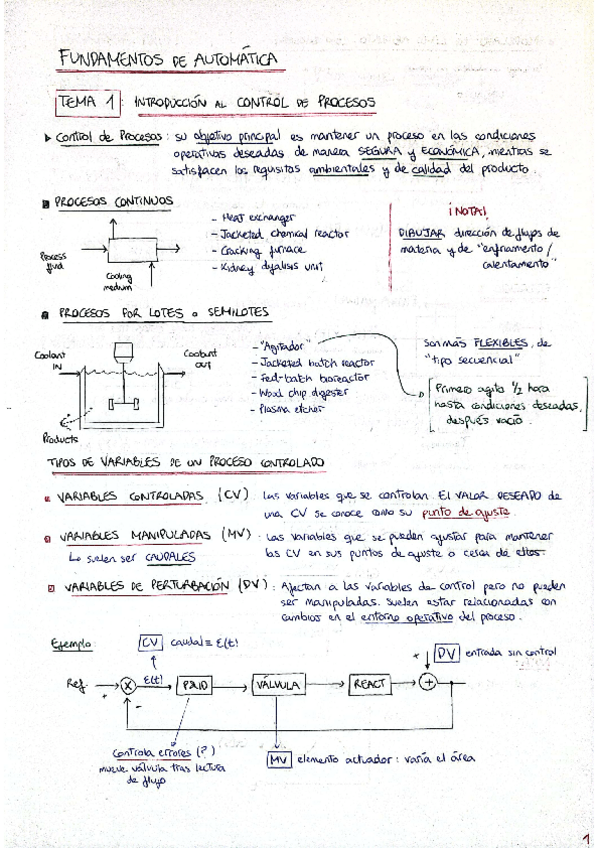 FUNDAMENTOS DE AUTOMÁTICA
TEMA 1: INTRODUCCIÓN AL CONTROL DE PROCESOS
Control de Procesos: su objetivo principal es mantener un proceso en las condiciones
operativas deseadas de manera SEGURA y ECONÓMICA, mientras se
satisfacen los requisitos ambientales y de calidad del producto.
PROCESOS CONTINUOS
- Heat exchanger
- Jacketed chemical reactor
- Cracking furnace
- Kidney dyalisis unit
Process
fluid
Cooling
medium
¡NOTA!
DIBUJAR dirección de flujos de
materia y de "enfriamiento/
calentamiento"
PROCESOS POR LOTES o SEMILOTES
Coolant
IN
Coolant
OUT
Products
- "Agitador"
- Jacketed batch reactor
- Fed-batch bioreactor
- Wood chip digester
- Plasma etcher
Son más FLEXIBLES, de
"tipo secuencial"
Primero agito 1/2 hora
hasta condiciones deseadas,
después vacío.
TIPOS DE VARIABLES DE UN PROCESO CONTROLADO
VARIABLES CONTROLADAS (CV): Las variables que se controlan. El VALOR DESEADO de
una CV se conoce como su punto de ajuste.
VARIABLES MANIPULADAS (MV): Las variables que se pueden ajustar para mantener
las CV en sus puntos de ajuste o cerca de ellos.
Lo suelen ser CAUDALES
VARIABLES DE PERTURBACIÓN (DV): Afectan a las variables de control pero no pueden
ser manipuladas. Suelen estar relacionadas con
cambios en el entorno operativo del proceso.
Ejemplo:
CV caudal ≡ E(t)
+ DV entrada sin control
Ref + x E(t) PID VÁLVULA REACT +
-
Controla errores (?)
mueve válvula tras lectura
de flujo
MV elemento actuador: varía el área
1